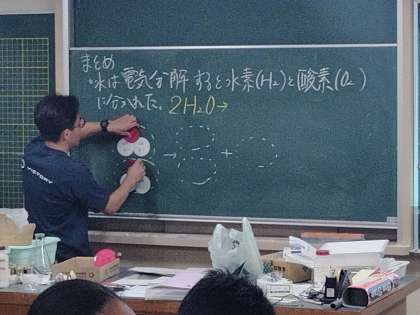 まとめ
・水は電気分解すると水素(H₂)と酸素(O₂)
に分かれた. 2H₂O→
→ +
VICTORY